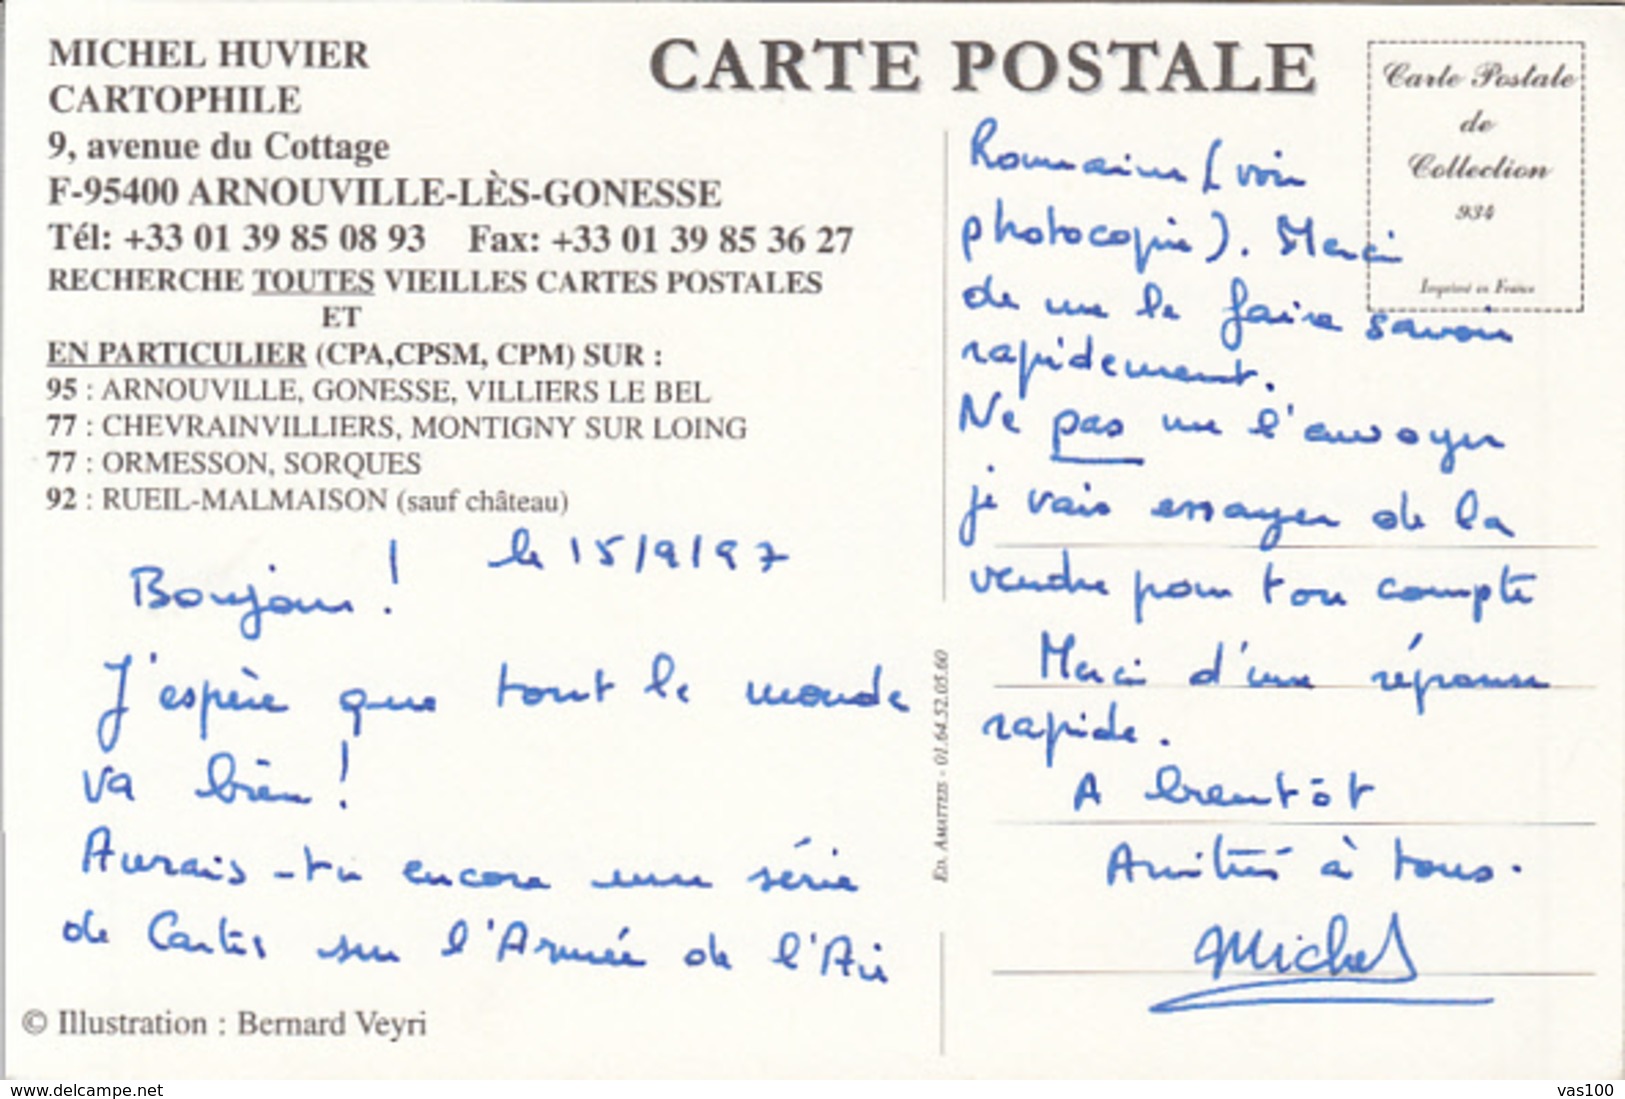 MICHEL HUVIER
CARTOPHILE
9, avenue du Cottage
F-95400 ARNOUVILLE-LÈS-GONESSE
Tél: +33 01 39 85 08 93 Fax: +33 01 39 85 36 27
RECHERCHE TOUTES VIEILLES CARTES POSTALES
ET
EN PARTICULIER (CPA,CPSM, CPM) SUR :
95 : ARNOUVILLE, GONESSE, VILLIERS LE BEL
77 : CHEVRAINVILLIERS, MONTIGNY SUR LOING
77 : ORMESSON, SORQUES
92 : RUEIL-MALMAISON (sauf château)
le 15/9/97
Bonjour !
J'espère que tout le monde
va bien !
Aurais-tu encore une série
de Cartes sur l'Armée de l'Air
© Illustration : Bernard Veyri
CARTE POSTALE
Carte Postale
de
Collection
934
Imprimé en France
Roumaine (voir
photocopie). Merci
de me le faire savoir
rapidement.
Ne pas me l'envoyer
je vais essayer de la
vendre pour ton compte
Merci d'une réponse
rapide.
A bientôt
Amitiés à tous.
Michel
ED. AMATTEIS - 01.64.52.05.60
www.delcampe.net
vas100